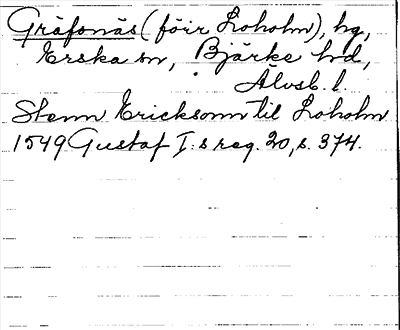 Gräfsnäs (förr Loholm), hg,
Erska sn, Bjärke hd,
Älvsb. l.
Stenn Ericksonn til Loholm
1549 Gustaf I:s reg. 20, s. 374.